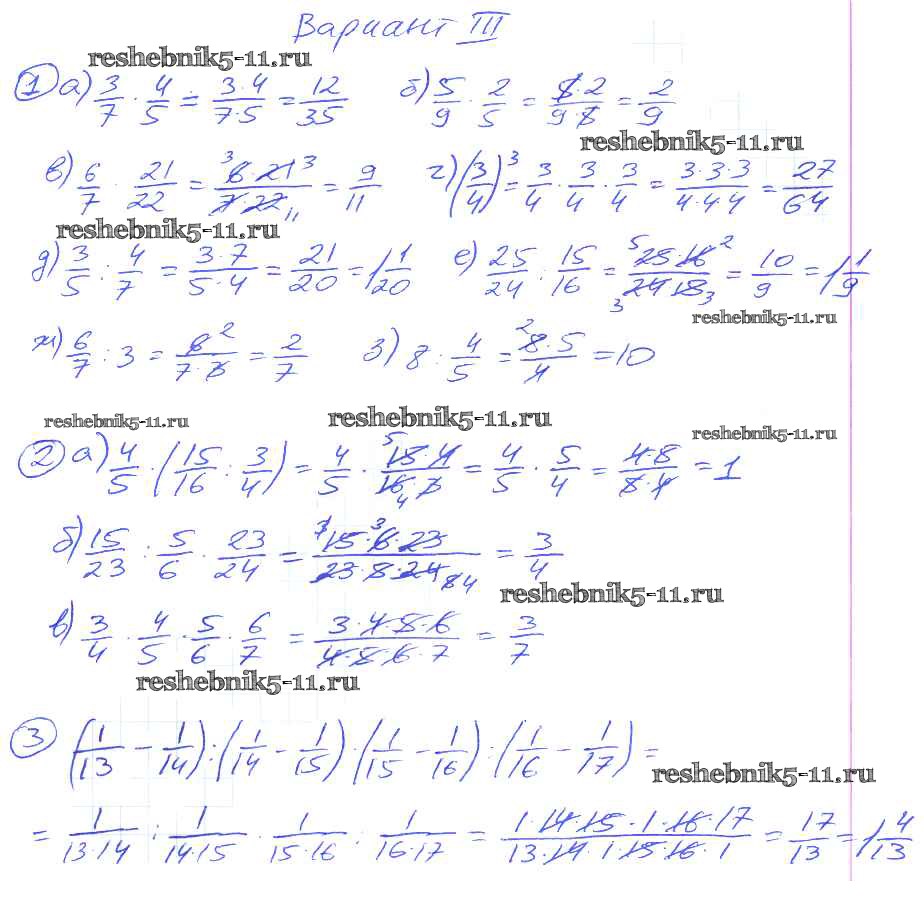 Вариант III
reshebnik5-11.ru
① а) 3/7 · 4/5 = 3·4/7·5 = 12/35 б) 5/9 · 2/5 = 5·2/9·5 = 2/9
reshebnik5-11.ru
в) 6/7 · 21/22 = 3 6·21 3/7·22 11 = 9/11 г) (3/4)³ = 3/4 · 3/4 · 3/4 = 3·3·3/4·4·4 = 27/64
reshebnik5-11.ru
д) 3/5 : 4/7 = 3·7/5·4 = 21/20 = 1 1/20 е) 25/24 : 15/16 = 5 25·16 2/3 24·15 3 = 10/9 = 1 1/9
reshebnik5-11.ru
ж) 6/7 : 3 = 6 2/7·3 = 2/7 з) 8 : 4/5 = 2 8·5/4 = 10
reshebnik5-11.ru reshebnik5-11.ru reshebnik5-11.ru
② а) 4/5 · (15/16 : 3/4) = 4/5 · 5 15·4/16 4·3 = 4/5 · 5/4 = 4·5/5·4 = 1
б) 15/23 : 5/6 · 23/24 = 3 15·6·23/23·5·24 4 = 3/4
reshebnik5-11.ru
в) 3/4 · 4/5 · 5/6 · 6/7 = 3·4·5·6/4·5·6·7 = 3/7
reshebnik5-11.ru
③ (1/13 − 1/14) : (1/14 − 1/15) · (1/15 − 1/16) : (1/16 − 1/17) =
reshebnik5-11.ru
= 1/13·14 : 1/14·15 · 1/15·16 : 1/16·17 = 1·14·15·1·16·17/13·14·1·15·16·1 = 17/13 = 1 4/13